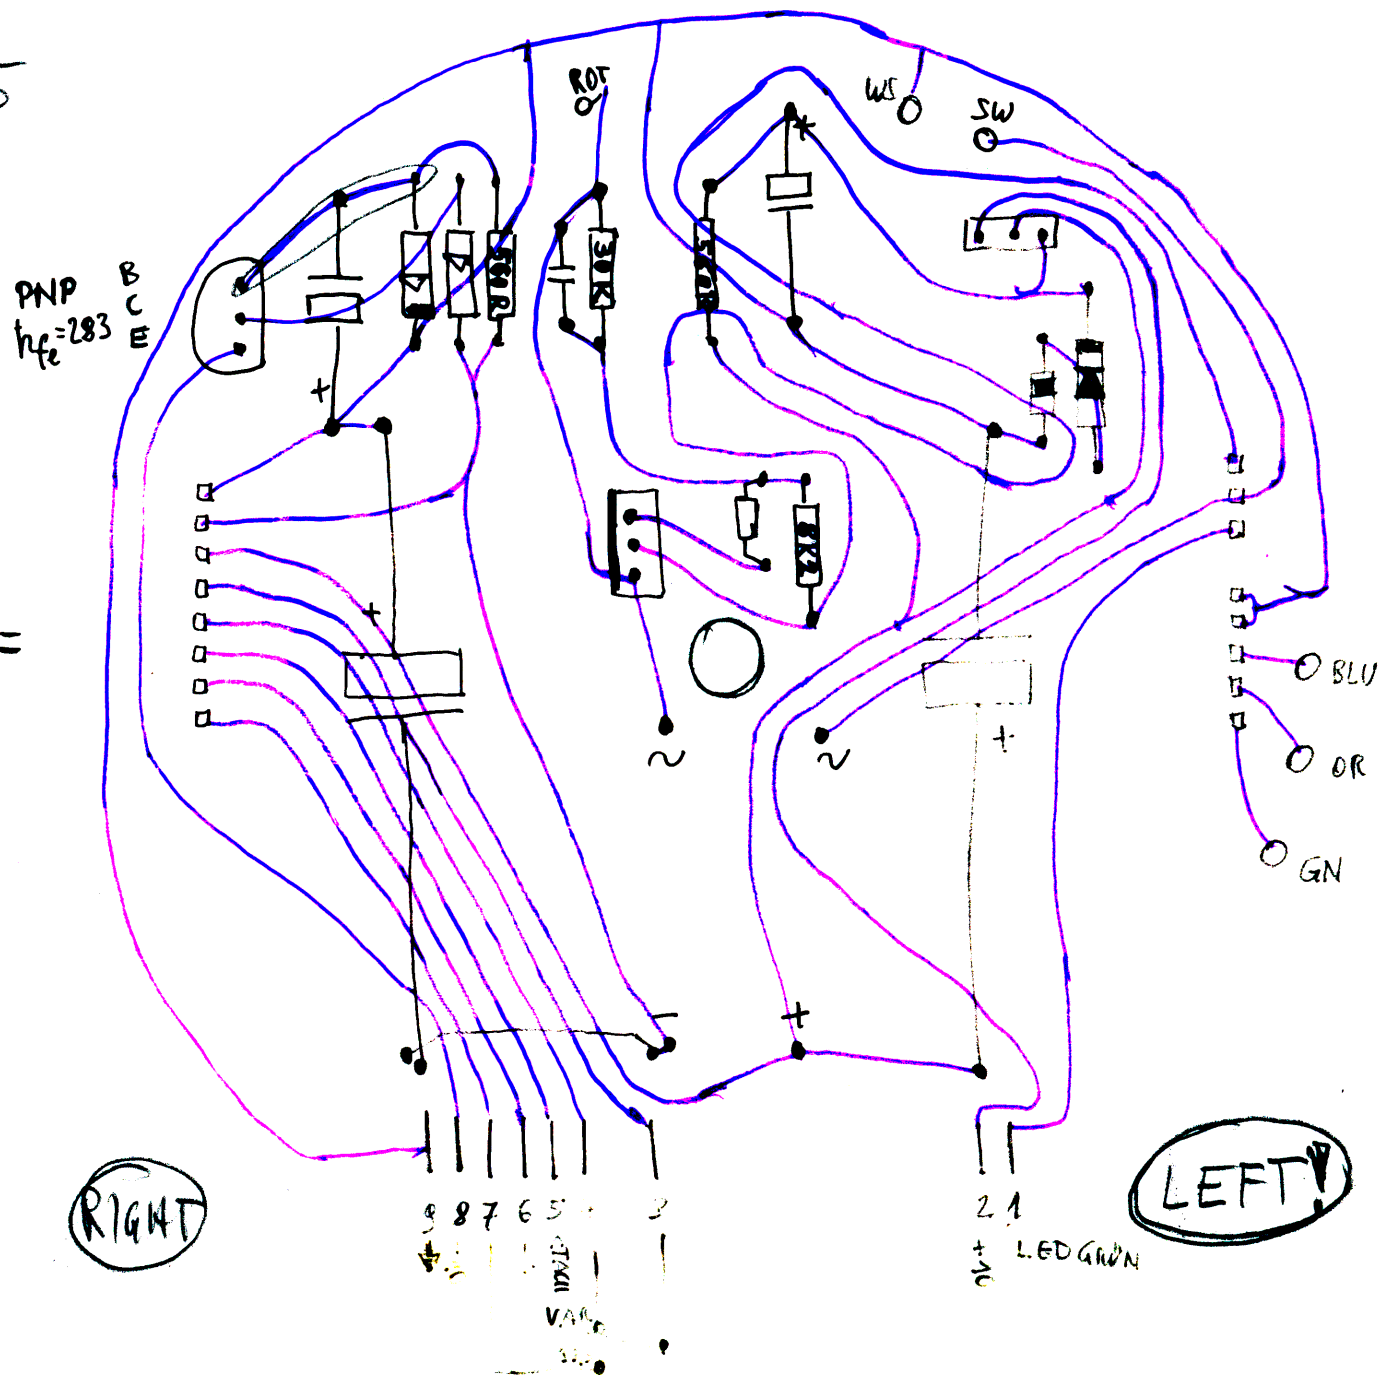 ROT
WS
SW
PNP
hfe=283
B
C
E
+
+
560R
30K
560R
8K2
+
+
~
~
BLU
OR
GN
-
+
RIGHT
LEFT!
9 8 7 6 5 3 2 1
LED GRÜN
TACH